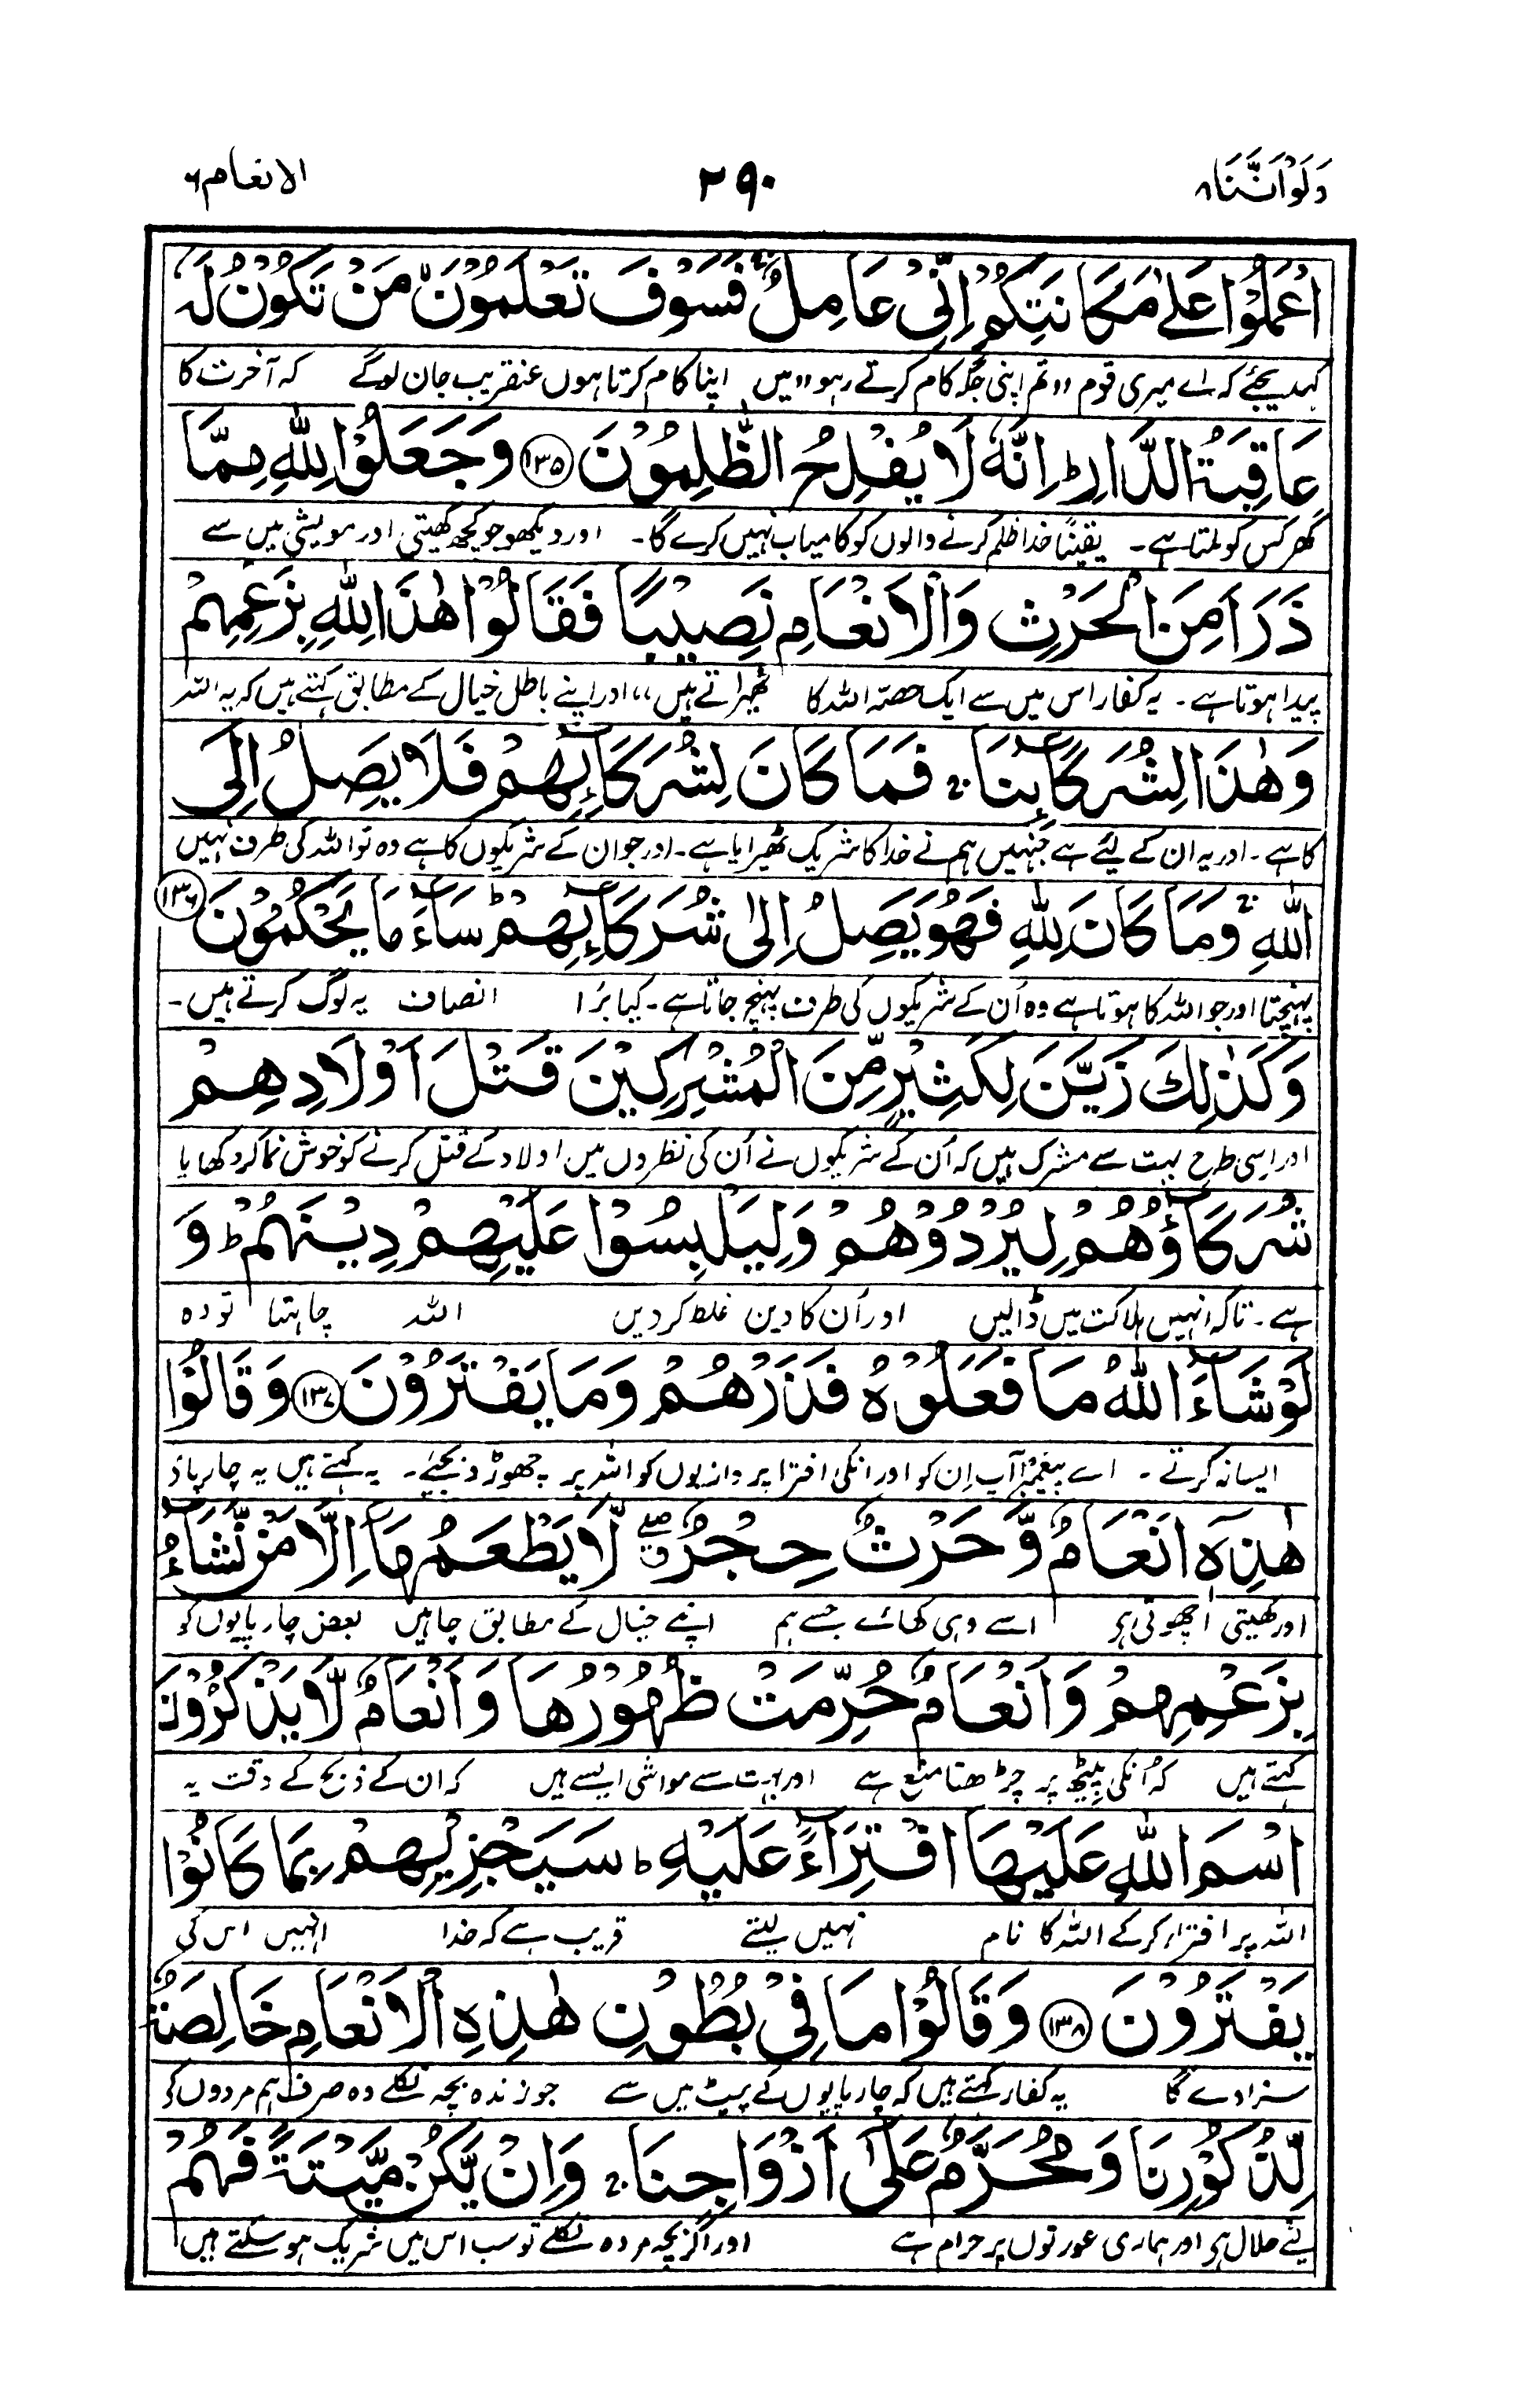 وَلَوْ اَنَّنَا ۸
۲۹۰
الانعام ۶
اعْمَلُوْا عَلٰى مَكَانَتِكُمْ اِنِّىْ عَامِلٌ ۚ فَسَوْفَ تَعْلَمُوْنَ ۙ مَنْ تَكُوْنُ لَهٗ
کہدیجئے کہ اے میری قوم ,, تم اپنی جگہ کام کرتے رہو ,, میں اپنا کام کرتا ہوں عنقریب جان لوگے کہ آخرت کا
عَاقِبَةُ الدَّارِ ؕ اِنَّهٗ لَا يُفْلِحُ الظّٰلِمُوْنَ ۱۳۵ وَجَعَلُوْا لِلّٰهِ مِمَّا
گھر کس کو ملتا ہے۔ یقیناً خدا ظلم کرنے والوں کو کامیاب نہیں کرے گا۔ اور دیکھو جو کچھ کھیتی اور مویشی میں سے
ذَرَاَ مِنَ الْحَرْثِ وَالْاَنْعَامِ نَصِيْبًا فَقَالُوْا هٰذَا لِلّٰهِ بِزَعْمِهِمْ
پیدا ہوتا ہے۔ یہ کفار اس میں سے ایک حصہ اللہ کا ٹھیراتے ہیں،، اور اپنے باطل خیال کے مطابق کہتے ہیں کہ یہ اللہ
وَهٰذَا لِشُرَكَآئِنَا ۚ فَمَا كَانَ لِشُرَكَآئِهِمْ فَلَا يَصِلُ اِلَى
کا ہے۔ اور یہ ان کے لئے ہے جنہیں ہم نے خدا کا شریک ٹھیرایا ہے۔ اور جو ان کے شریکوں کا ہے وہ تو اللہ کی طرف نہیں
اللّٰهِ ۚ وَمَا كَانَ لِلّٰهِ فَهُوَ يَصِلُ اِلٰى شُرَكَآئِهِمْ ؕ سَآءَ مَا يَحْكُمُوْنَ ۱۳۶
پہنچتا اور جو اللہ کا ہوتا ہے وہ اُن کے شریکوں کی طرف پہنچ جاتا ہے۔ کیا بُرا انصاف یہ لوگ کرتے ہیں۔
وَكَذٰلِكَ زَيَّنَ لِكَثِيْرٍ مِّنَ الْمُشْرِكِيْنَ قَتْلَ اَوْلَادِهِمْ
اور اسی طرح بہت سے مشرک ہیں کہ اُن کے شریکوں نے اُن کی نظروں میں اولاد کے قتل کرنے کو خوش نما کر دکھایا
شُرَكَآؤُهُمْ لِيُرْدُوْهُمْ وَلِيَلْبِسُوْا عَلَيْهِمْ دِيْنَهُمْ ؕ وَ
ہے۔ تاکہ انہیں ہلاکت میں ڈالیں اور اُن کا دین غلط کر دیں اللہ چاہتا تو وہ
لَوْ شَآءَ اللّٰهُ مَا فَعَلُوْهُ فَذَرْهُمْ وَمَا يَفْتَرُوْنَ ۱۳۷ وَقَالُوْا
ایسا نہ کرتے۔ اے پیغمبرؐ آپ اِن کو اور انکی افترا پردازیوں کو اللہ پر چھوڑ دیجئے۔ یہ کہتے ہیں یہ چارپاؤ
هٰذِهٖٓ اَنْعَامٌ وَّحَرْثٌ حِجْرٌ ۖ لَّا يَطْعَمُهَآ اِلَّا مَنْ نَّشَآءُ
اور کھیتی اچھوتی ہو اسے وہی کھائے جسے ہم اپنے خیال کے مطابق چاہیں بعض چارپایوں کو
بِزَعْمِهِمْ وَاَنْعَامٌ حُرِّمَتْ ظُهُوْرُهَا وَاَنْعَامٌ لَّا يَذْكُرُوْنَ
کہتے ہیں کہ اُنکی پیٹھ پر چڑھنا منع ہے اور بہت سے مواشی ایسے ہیں کہ ان کے ذبح کے وقت یہ
اسْمَ اللّٰهِ عَلَيْهَا افْتِرَآءً عَلَيْهِ ؕ سَيَجْزِيْهِمْ بِمَا كَانُوْا
اللہ پر افترا کر کے اللہ کا نام نہیں لیتے قریب ہے کہ خدا انہیں اس کی
يَفْتَرُوْنَ ۱۳۸ وَقَالُوْا مَا فِىْ بُطُوْنِ هٰذِهِ الْاَنْعَامِ خَالِصَةٌ
سزا دے گا یہ کفار کہتے ہیں کہ چارپایوں کے پیٹ میں سے جو زندہ بچہ نکلے وہ صرف ہم مردوں کی
لِّذُكُوْرِنَا وَمُحَرَّمٌ عَلٰٓى اَزْوَاجِنَا ۚ وَاِنْ يَّكُنْ مَّيْتَةً فَهُمْ
لئے حلال ہے اور ہماری عورتوں پر حرام ہے اور اگر بچہ مردہ نکلے تو سب اس میں شریک ہو سکتے ہیں